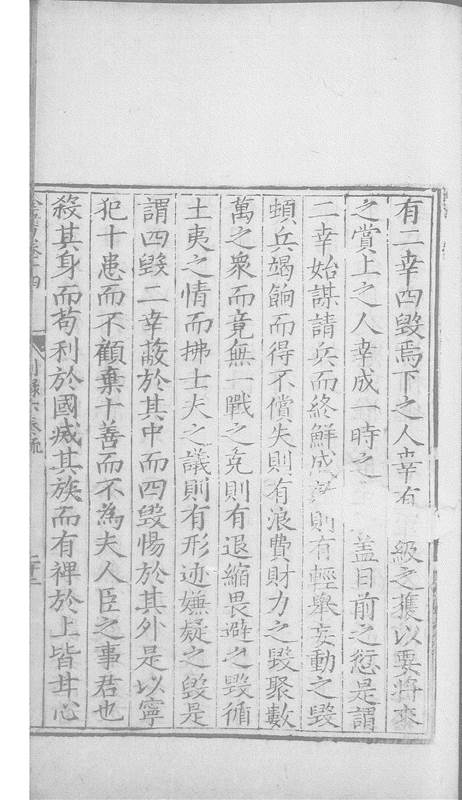 有二幸四毁焉下之人幸有級之獲以要將來
之賞上之人幸成一時之蓋日前之愆是謂
二幸始謀請兵而終鮮成則有輕舉妄動之毁
頓兵竭餉而得不償失則有浪費財力之毁聚數
萬之衆而竟無一戰之克則有退縮畏避之毁循
土夷之情而拂士夫之議則有形迹嫌疑之毁是
謂四毁二幸蔽於其中而四毁惕於其外是以寧
犯十患而不顧棄十善而不為夫人臣之事君也
殺其身而苟利於國滅其族而有裨於上皆甘心